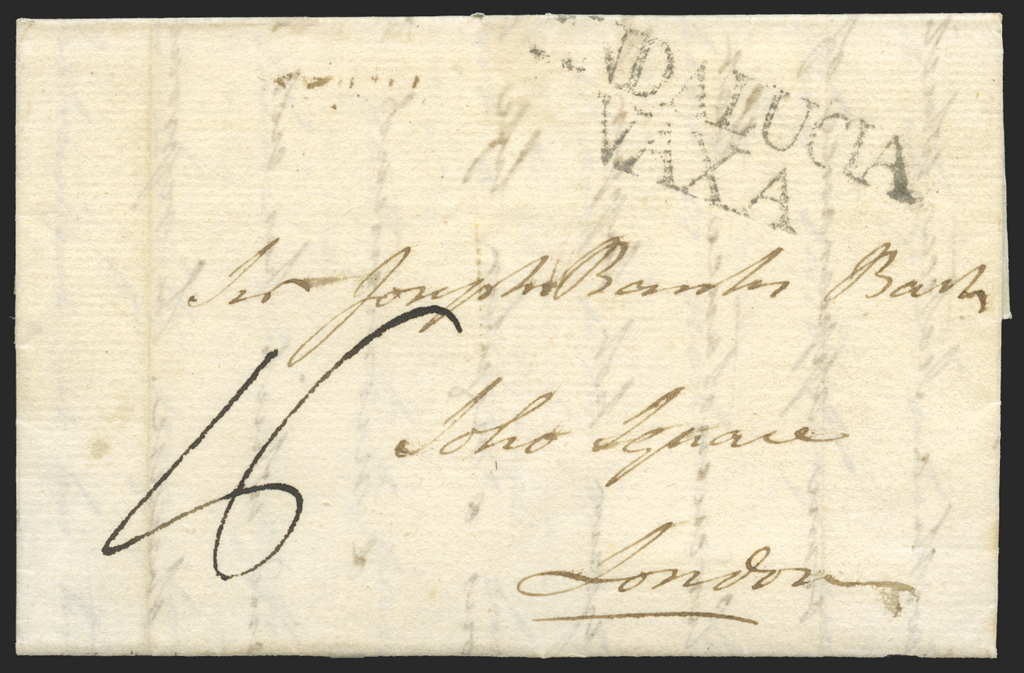 ANDALUCIA
VAXA
Sir Joseph Banks Bart
Soho Square
London